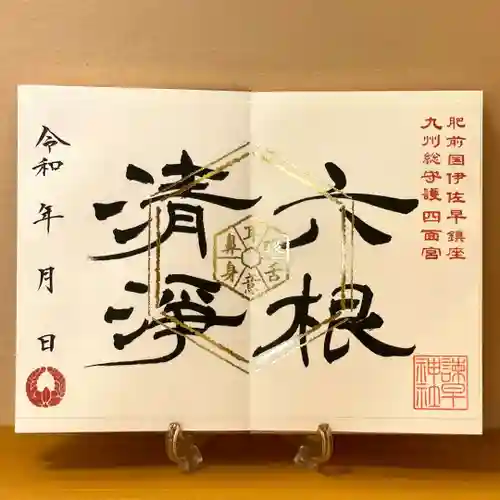 肥前国伊佐早鎮座
九州総守護四面宮
六根
清浄
耳
舌
意
身
鼻
令和 年 月 日
諫早
神社